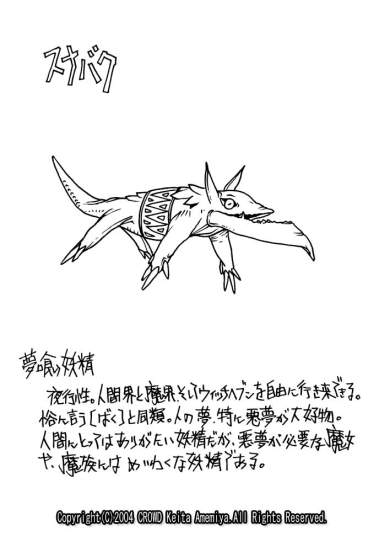 スナバク
夢喰い妖精
夜行性。人間界と魔界、そしてウィッチヘブンを自由に行き来できる。
俗に言う[ばく]と同類。人の夢、特に悪夢が大好物。
人間にとってはありがたい妖精だが、悪夢が必要な魔女
や、魔族には めいわくな妖精である。
Copyright(C)2004 CROWD Keita Amemiya.All Rights Reserved.